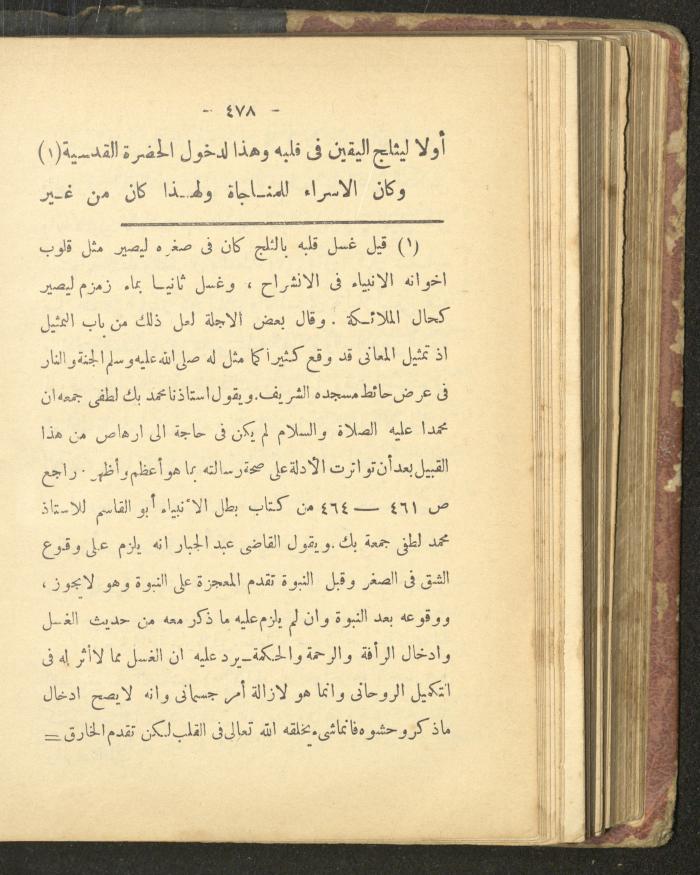 - ٤٧٨ -
أولا ليثلج اليقين فى قلبه وهذا لدخول الحضرة القدسية (١)
وكان الاسراء للمناجاة ولهذا كان من غير
(١) قيل غسل قلبه بالثلج كان فى صغره ليصير مثل قلوب
اخوانه الانبياء فى الانشراح ، وغسل ثانيا بماء زمزم ليصير
كحال الملائكة . وقال بعض الاجلة لعل ذلك من باب التمثيل
اذ تمثيل المعانى قد وقع كثيرا كما مثل له صلى الله عليه وسلم الجنة والنار
فى عرض حائط مسجده الشريف. ويقول استاذنا محمد بك لطفى جمعه ان
محمدا عليه الصلاة والسلام لم يكن فى حاجة الى ارهاص من هذا
القبيل بعد أن تواترت الأدلة على صحة رسالته بما هو أعظم وأظهر . راجع
ص ٤٦١ — ٤٦٤ من كتاب بطل الانبياء أبو القاسم للاستاذ
محمد لطفى جمعة بك. ويقول القاضى عبد الجبار انه يلزم على وقوع
الشق فى الصغر وقبل النبوة تقدم المعجزة على النبوة وهو لايجوز ،
ووقوعه بعد النبوة وان لم يلزم عليه ما ذكر معه من حديث الغسل
وادخال الرأفة والرحمة والحكمة ــ يرد عليه ان الغسل مما لا أثر له فى
التكميل الروحانى وانما هو لازالة أمر جسمانى وانه لايصح ادخال
ماذكر وحشوه فانما شىء يخلقه الله تعالى فى القلب لكن تقدم الخارق =